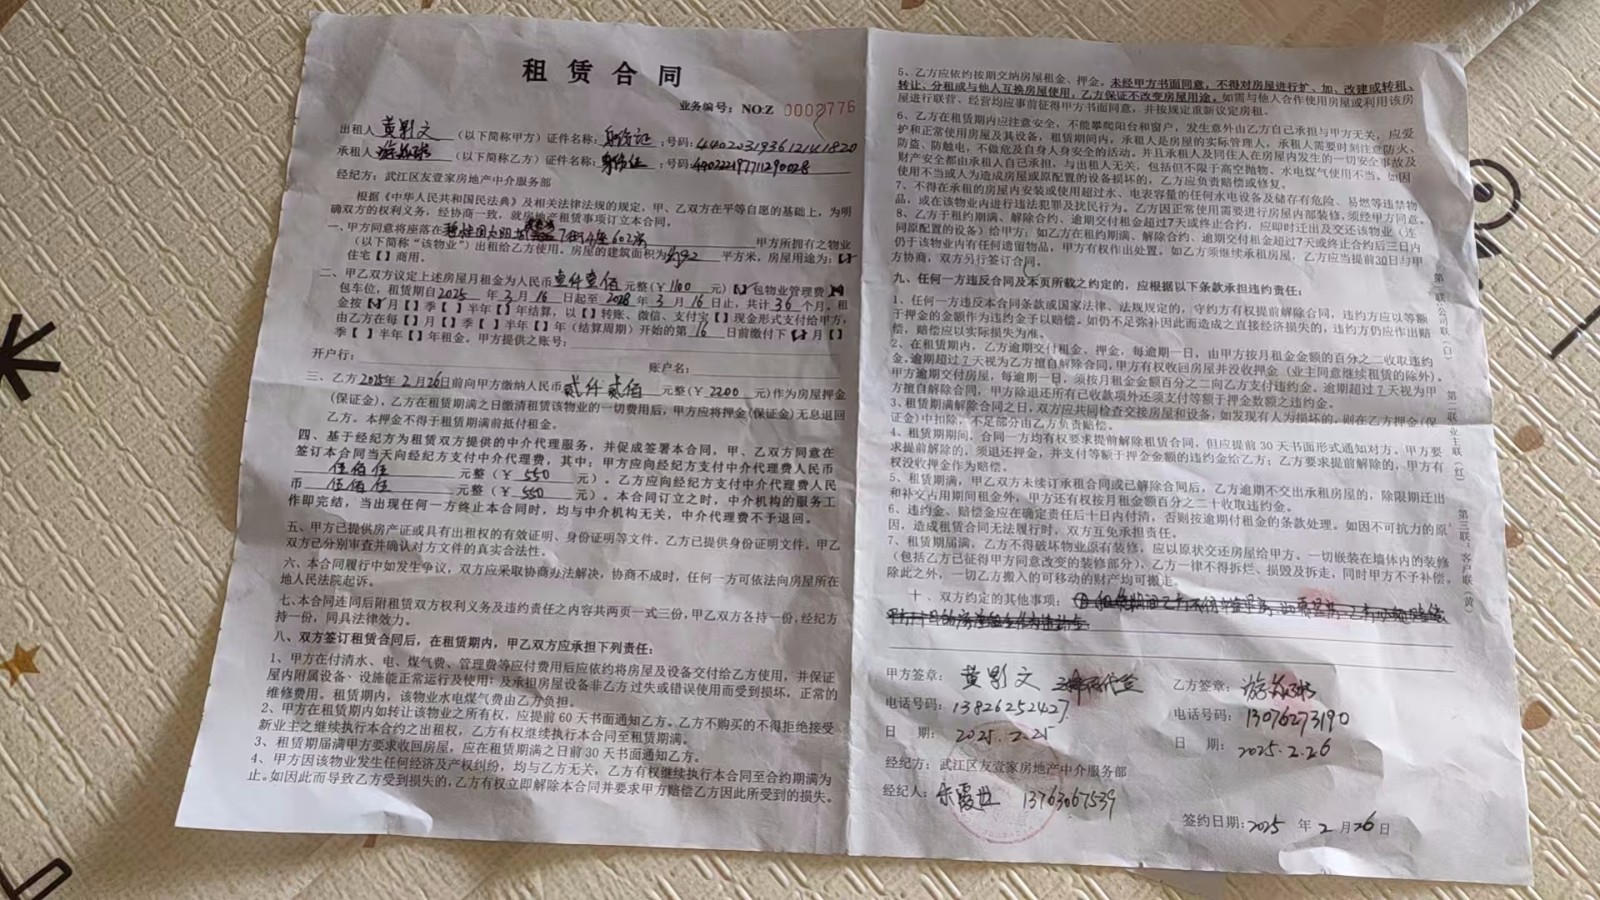 租赁合同
业务编号：NO:Z 0002776
出租人 黄影文 （以下简称甲方）证件名称：身份证 ；号码：440203193612141820
承租人 （以下简称乙方）证件名称：身份证 ；号码：440222197711290028
经纪方：武江区友壹家房地产中介服务部
根据《中华人民共和国民法典》及相关法律法规的规定，甲、乙双方在平等自愿的基础上，为明
确双方的权利义务，经协商一致，就房地产租赁事项订立本合同。
一、甲方同意将座落在 602房 甲方所拥有之物业
（以下简称“该物业”）出租给乙方使用。房屋的建筑面积为 平方米，房屋用途为：【】
住宅【 】商用。
二、甲乙双方议定上述房屋月租金为人民币 壹仟壹佰 元整（￥1100 元）【】包物业管理费【】
包车位，租赁期自2025 年 3 月 16 日起至 2028 年 3 月 16 日止，共计 36 个月。租
金按【】月【 】季【 】半年【 】年结算，以【 】转账、微信、支付宝【 】现金形式支付给甲方，
由乙方在每【 】月【 】季【 】半年【 】年（结算周期）开始的第 16 日前缴付下【】月【 】
季【 】半年【 】年租金。甲方提供之账号：
开户行： 账户名：
三、乙方2025年2月26日前向甲方缴纳人民币 贰仟贰佰 元整（￥2200 元）作为房屋押金
（保证金），乙方在租赁期满之日缴清租赁该物业的一切费用后，甲方应将押金（保证金）无息退回
乙方。本押金不得于租赁期满前抵付租金。
四、基于经纪方为租赁双方提供的中介代理服务，并促成签署本合同，甲、乙双方同意在
签订本合同当天向经纪方支付中介代理费，其中：甲方应向经纪方支付中介代理费人民币
元整（￥ 550 元）。乙方应向经纪方支付中介代理费人民
币 元整（￥ 550 元）。本合同订立之时，中介机构的服务工
作即完结，当出现任何一方终止本合同时，均与中介机构无关，中介代理费不予退回。
五、甲方已提供房产证或具有出租权的有效证明、身份证明等文件。乙方已提供身份证明文件。甲乙
双方已分别审查并确认对方文件的真实合法性。
六、本合同履行中如发生争议，双方应采取协商办法解决，协商不成时，任何一方可依法向房屋所在
地人民法院起诉。
七、本合同连同后附租赁双方权利义务及违约责任之内容共两页一式三份，甲乙双方各持一份，经纪方
持一份，同具法律效力。
八、双方签订租赁合同后，在租赁期内，甲乙双方应承担下列责任：
1、甲方在付清水、电、煤气费、管理费等应付费用后应依约将房屋及设备交付给乙方使用，并保证
屋内附属设备、设施能正常运行及使用；及承担房屋设备非乙方过失或错误使用而受到损坏，正常的
维修费用。租赁期内，该物业水电煤气费由乙方负担。
2、甲方在租赁期内如转让该物业之所有权，应提前60天书面通知乙方。乙方不购买的不得拒绝接受
新业主之继续执行本合约之出租权，乙方有权继续执行本合同至租赁期满。
3、租赁期届满甲方要求收回房屋，应在租赁期满之日前30天书面通知乙方。
4、甲方因该物业发生任何经济及产权纠纷，均与乙方无关，乙方有权继续执行本合同至合约期满为
止。如因此而导致乙方受到损失的，乙方有权立即解除本合同并要求甲方赔偿乙方因此所受到的损失。
5、乙方应依约按期交纳房屋租金、押金。未经甲方书面同意，不得对房屋进行扩、加、改建或转租、
转让、分租或与他人互换房屋使用，乙方保证不改变房屋用途，如需与他人合作使用房屋或利用该房
屋进行联营、经营均应事前征得甲方书面同意，并按规定重新议定房租。
6、乙方在租赁期内应注意安全，不能攀爬阳台和窗户，发生意外由乙方自己承担与甲方无关，应爱
护和正常使用房屋及其设备，租赁期间内，承租人是房屋的实际管理人，承租人需要时刻注意防火、
防盗、防触电，不做危及自身人身安全的活动。并且承租人及同住人在房屋内发生的一切安全事故及
财产安全都由承租人自己承担，与出租人无关，包括但不限于高空抛物、水电煤气使用不当。如因
使用不当或人为造成房屋或原配置的设备损坏的，乙方应负责赔偿或修复。
7、不得在承租的房屋内安装或使用超过水、电表容量的任何水电设备及储存有危险、易燃等违禁物
品，或在该物业内进行违法犯罪及扰民行为。乙方因正常使用需要进行房屋内部装修，须经甲方同意。
8、乙方于租约期满、解除合约、逾期交付租金超过7天或终止合约，应即时迁出及交还该物业（连
同原配置的设备）给甲方；如乙方在租约期满、解除合约、逾期交付租金超过7天或终止合约后三日内
仍于该物业内有任何遗留物品，甲方有权作出处置。如乙方须继续承租房屋，乙方应当提前30日与甲
方协商，双方另行签订合同。
九、任何一方违反合同及本页所载之约定的，应根据以下条款承担违约责任：
1、任何一方违反本合同条款或国家法律、法规规定的，守约方有权提前解除合同，违约方应以等额
于押金的金额作为违约金予以赔偿。如仍不足弥补因此而造成之直接经济损失的，违约方仍应作出赔
偿，赔偿应以实际损失为准。
2、在租赁期内，乙方逾期交付租金、押金，每逾期一日，由甲方按月租金金额的百分之二收取违约
金。逾期超过7天视为乙方擅自解除合同，甲方有权收回房屋并没收押金（业主同意继续租赁的除外）。
甲方逾期交付房屋，每逾期一日，须按月租金金额百分之二向乙方支付违约金。逾期超过7天视为甲
方擅自解除合同，甲方除退还所有已收款项外还须支付等额于押金数额之违约金。
3、租赁期满解除合同之日，双方应共同检查交接房屋和设备，如发现有人为损坏的，则在乙方押金（保
证金）中扣除，不足部分由乙方负责赔偿。
4、租赁期期间，合同一方均有权要求提前解除租赁合同，但应提前30天书面形式通知对方。甲方要
求提前解除的，须退还押金，并支付等额于押金金额的违约金给乙方；乙方要求提前解除的，甲方有
权没收押金作为赔偿。
5、租赁期满，甲乙双方未续订承租合同或已解除合同后，乙方逾期不交出承租房屋的，除限期迁出
和补交占用期间租金外，甲方还有权按月租金额百分之二十收取违约金。
6、违约金、赔偿金应在确定责任后十日内付清，否则按逾期付租金的条款处理。如因不可抗力的原
因，造成租赁合同无法履行时，双方互免承担责任。
7、租赁期届满，乙方不得破坏物业原有装修，应以原状交还房屋给甲方。一切嵌装在墙体内的装修
（包括乙方已征得甲方同意改变的装修部分），乙方一律不得拆烂、损毁及拆走，同时甲方不予补偿。
除此之外，一切乙方搬入的可移动的财产均可搬走。
十、双方约定的其他事项：
甲方签章： 黄影文
电话号码：13826252427
日 期： 2025.2.25
经纪方：武江区友壹家房地产中介服务部
经纪人： 13763067539
乙方签章：
电话号码：13076273190
日 期：2025.2.26
签约日期：2025 年 2 月 26 日
第一联公司联（白）
第二联业主联（红）
第三联、客户联（黄）